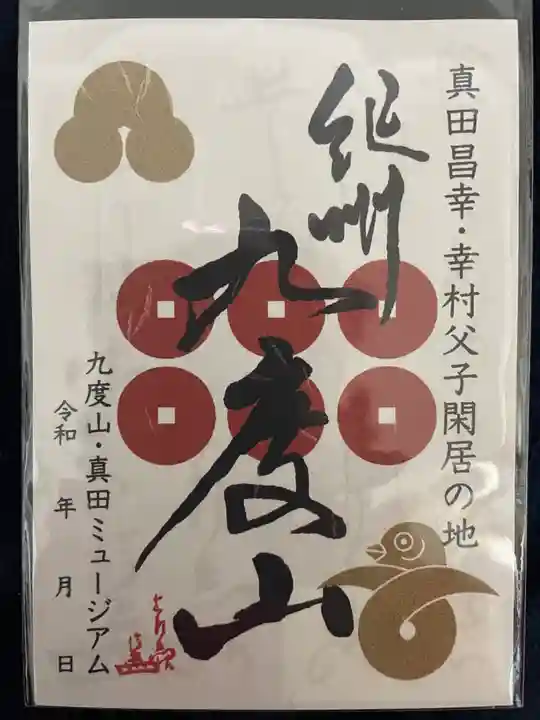 真田昌幸・幸村父子閑居の地
紀州
九度山
九度山・真田ミュージアム
令和 年 月 日